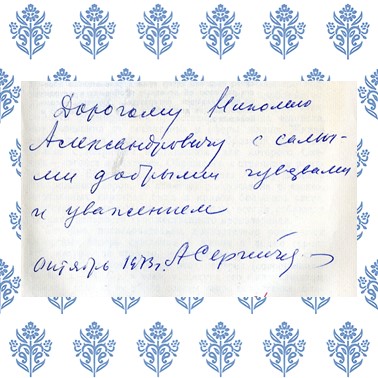 Дорогому Николаю
Александровичу с самы-
ми добрыми чувствами
и уважением
октябрь 1973г.